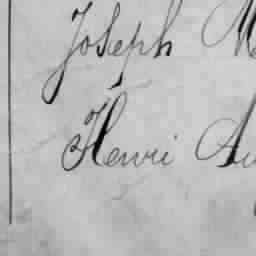 Joseph M
Henri Au